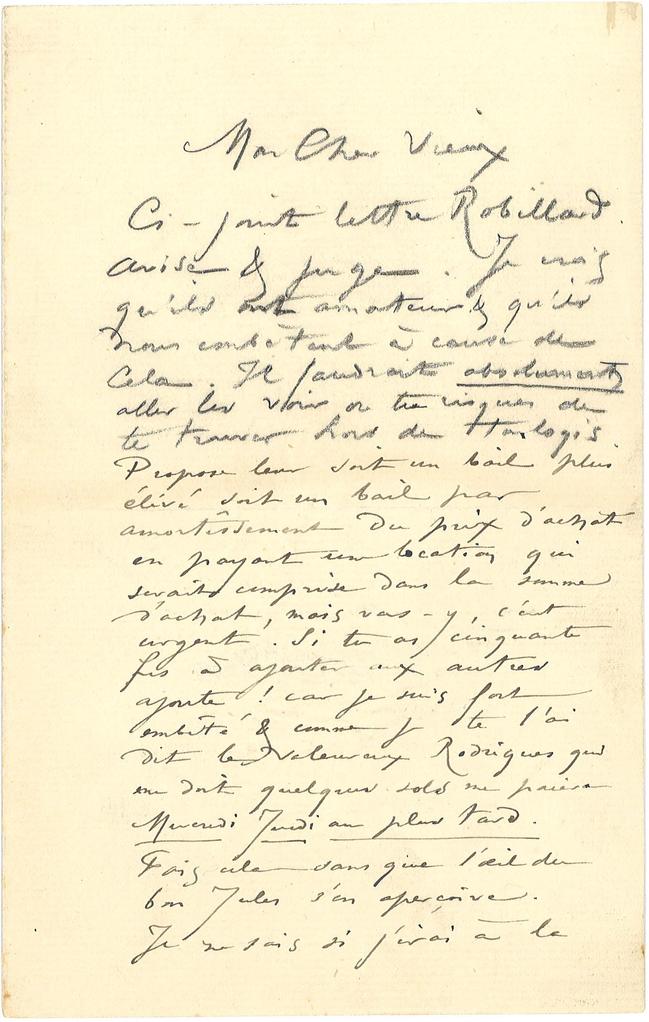 Mon Cher Vieux
Ci-joint lettre Robillard.
avise & juge. Je crois
qu'ils ont amateur & qu'ils
nous embêtent à cause de
Cela. Il faudrait absolument
aller les voir ou tu risques de
te trouver hors de
Propose leur soit un bail plus
élevé soit un bail par
amortissement du prix d'achat
en payant une location qui
serait comprise dans la somme
d'achat, mais vas-y, c'est
urgent. Si tu as cinquante
frs à ajouter aux autres
ajoute ! car je suis fort
embêté & comme je te l'ai
dit le Valeureux Rodrigues qui
me doit quelques sols me paiera
Mercredi Jeudi au plus tard.
Fais cela sans que l'œil du
bon Jules s'en aperçoive.
Je ne sais si j'irai à la